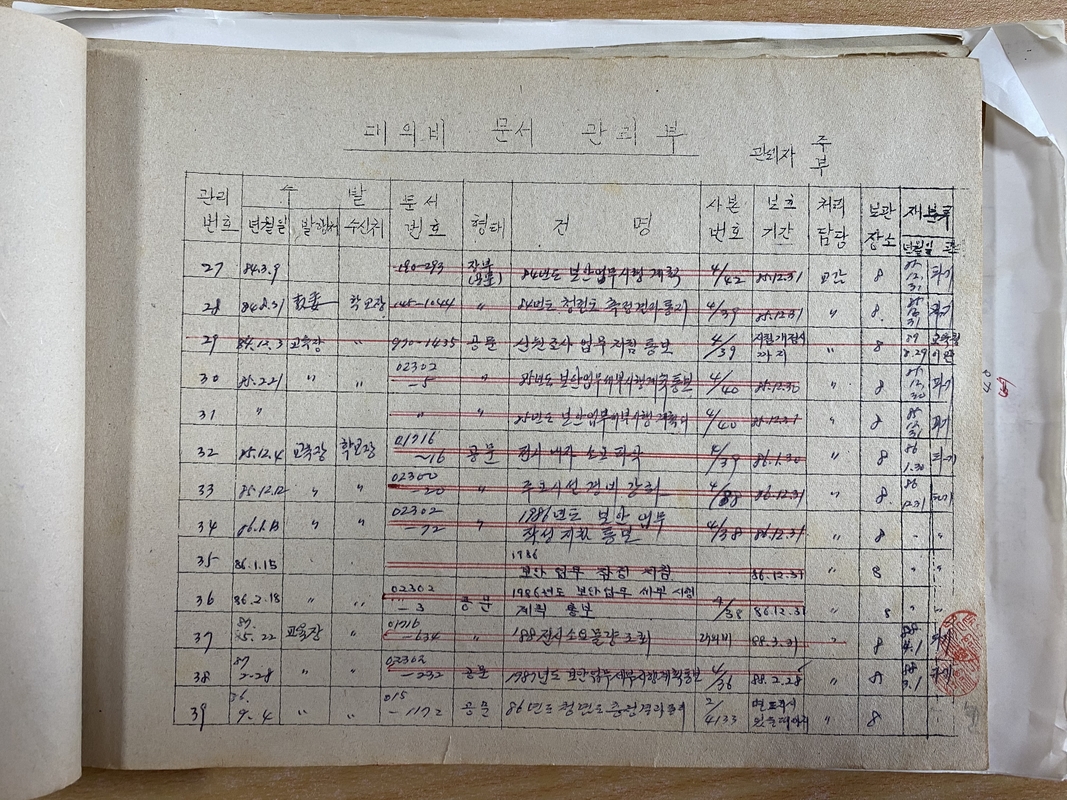 대외비 문서 관리부
관리자 주
부
관리 번호 수 발 문서 번호 형태 건 명 사본 번호 보호 기간 처리 담당 보관 장소 재분류
년월일 발행처 수신처 년월일 구분
27 84.3.9 190-293 장부 84년도 보안업무시행계획 4/42 85.12.31 교감 8 85.12.31 파기
28 84.8.31 教委 학교장 145-1044 〃 84년도 청렴도 측정결과통지 4/39 85.12.31 〃 8. 85.12.31 파기
29 84.12.3 교육장 〃 970-1435 공문 신원조사 업무지침 통보 4/39 까지 〃 8 89 8.29 이관
30 85.2.21 〃 〃 02302-5 〃 85년도 보안업무세부시행계획통보 4/40 85.12.30 〃 8 85.12.30 파기
31 〃 〃 〃 85년도 보안업무세부시행계획 4/40 85.12.31 〃 8 85.12.31 파기
32 85.12.4 교육장 학교장 01716-16 공문 전시 4/39 86.1.30 〃 8 86.1.30 파기
33 85.12.12 〃 〃 02300-20 〃 주요시설 경비 강화 4/38 86.12.31 〃 8. 86 12.31 파기
34 86.1.13 〃 〃 02302-72 〃 1986년도 보안 업무
작성지침 통보 4/38 86.12.31 〃 8 〃 〃
35 86.1.15 1986
보안 업무 지침 86.12.31 〃 8 〃 〃
36 86.2.18 〃 〃 02302-3 공문 1986년도 보안업무 세부 시행
계획 통보 4/38 86.12.31 〃 8 〃 〃
37 87.5.22 교육장 〃 01716-634 〃 '88전시소요물량조회 대외비 88.3.31 〃 8 88 4.1 파기
38 87 2-28 〃 〃 02302-232 공문 1987년도 보안업무세부시행계획통보 4/36 88.2.28 〃 8 88 3.1 파기
39 86. 9.4 〃 〃 015-1172 공문 86년도 2/4133 〃 8